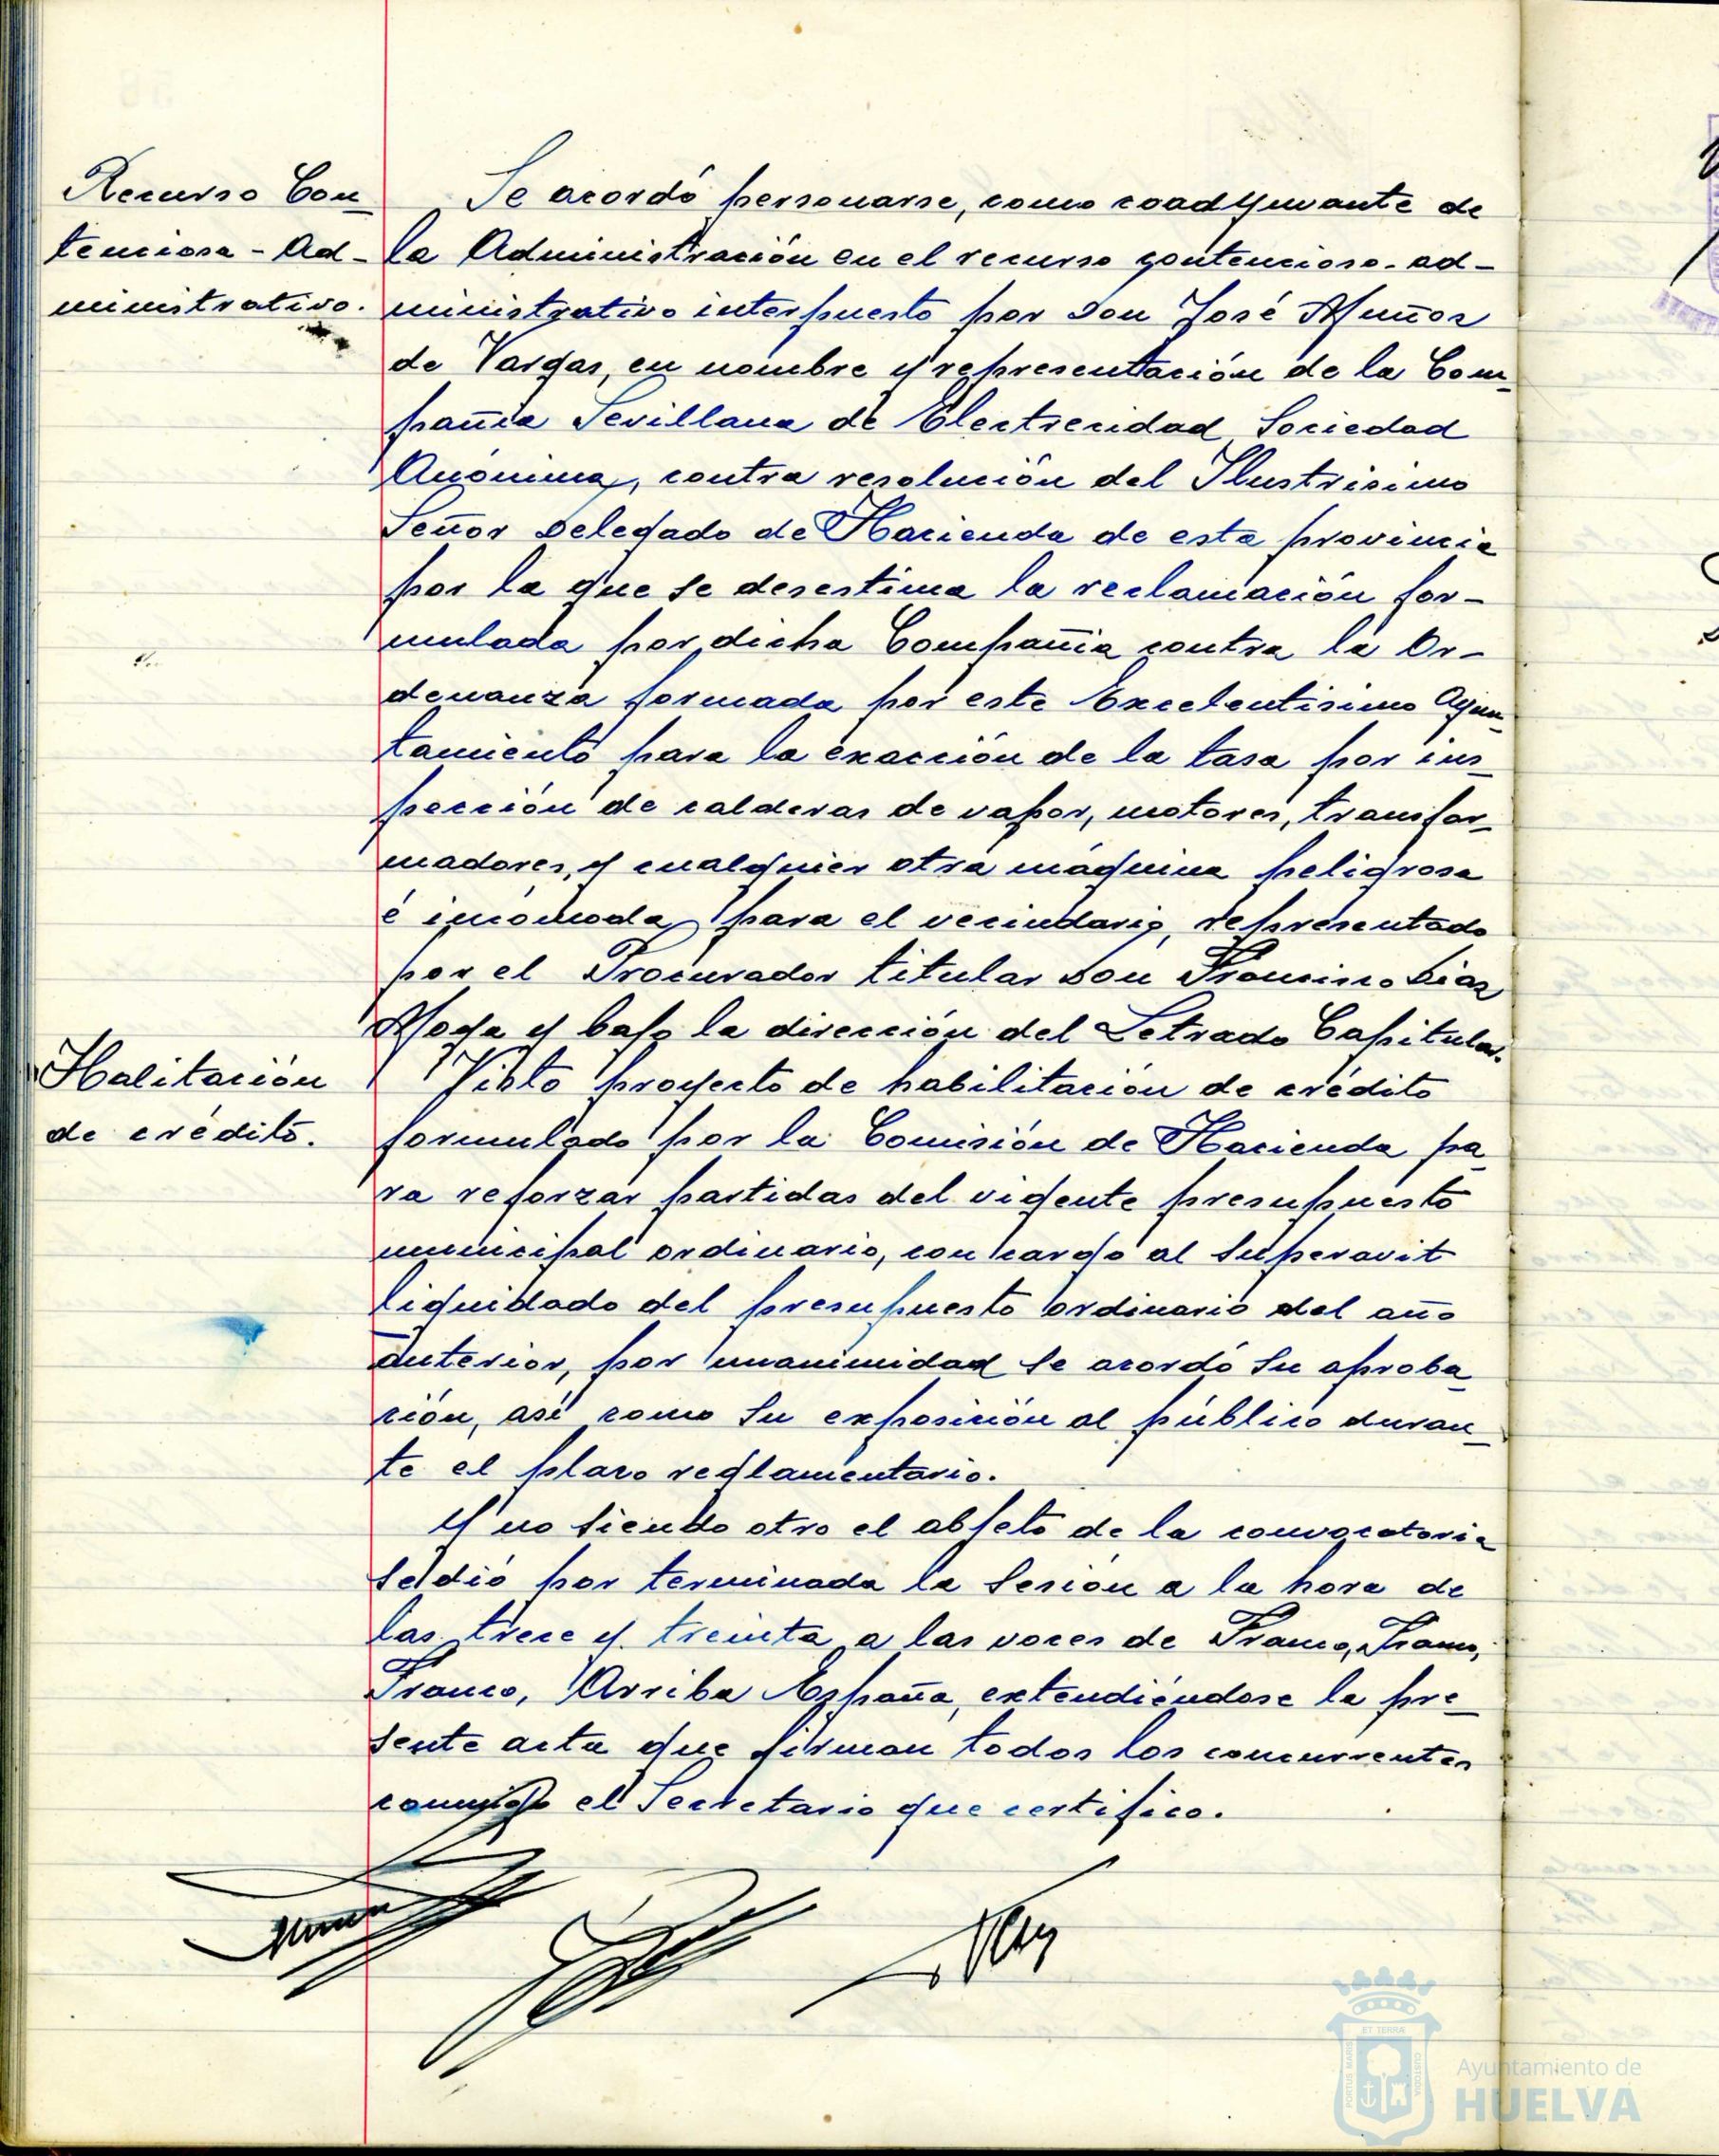 Recurso Con_
tencioso - Ad-
ministrativo.
Se acordó personarse, como coadyuvante de
la Administración en el recurso contencioso-ad-
ministrativo interpuesto por Don José Muñoz
de Vargas, en nombre y representación de la Com_
pañia Sevillana de Electrecidad Sociedad
Anónima, contra resolución del Ilustrisimo
Señor Delegado de Hacienda de esta provincia
por la que se desestima la reclamación for-
mulada por dicha Compañia contra la Or-
denanza formada por este Excelentisimo Ayun_
tamiento para la exacción de la tasa por ins_
pección de calderas de vapor, motores, transfor_
madores, y cualquier otra máquina peligrosa
é incómoda para el vecindario, representado
por el Procurador titular Don Francisco Diaz
Moya y bajo la dirección del Letrado Capitular.
Halitación
de crédito.
Visto proyecto de habilitación de crédito
formulado por la Comisión de Hacienda pa_
ra reforzar partidas del vigente presupuesto
municipal ordinario, con cargo al Superavit
liquidado del presupuesto ordinario del año
anterior, por unanimidad se acordó su aproba_
ción, asi como su exposición al público duran_
te el plazo reglamentario.
Y no siendo otro el objeto de la convocatoria
se dió por terminada la Sesión a la hora de
las trece y treinta a las voces de Franco, Franco,
Franco, Arriba España, extendiéndose la pre_
sente acta que firman todos los concurrentes
conmigo el Secretario que certifico.
ET TERRÆ
PORTUS MARIS
CUSTODIA
Ayuntamiento de
HUELVA